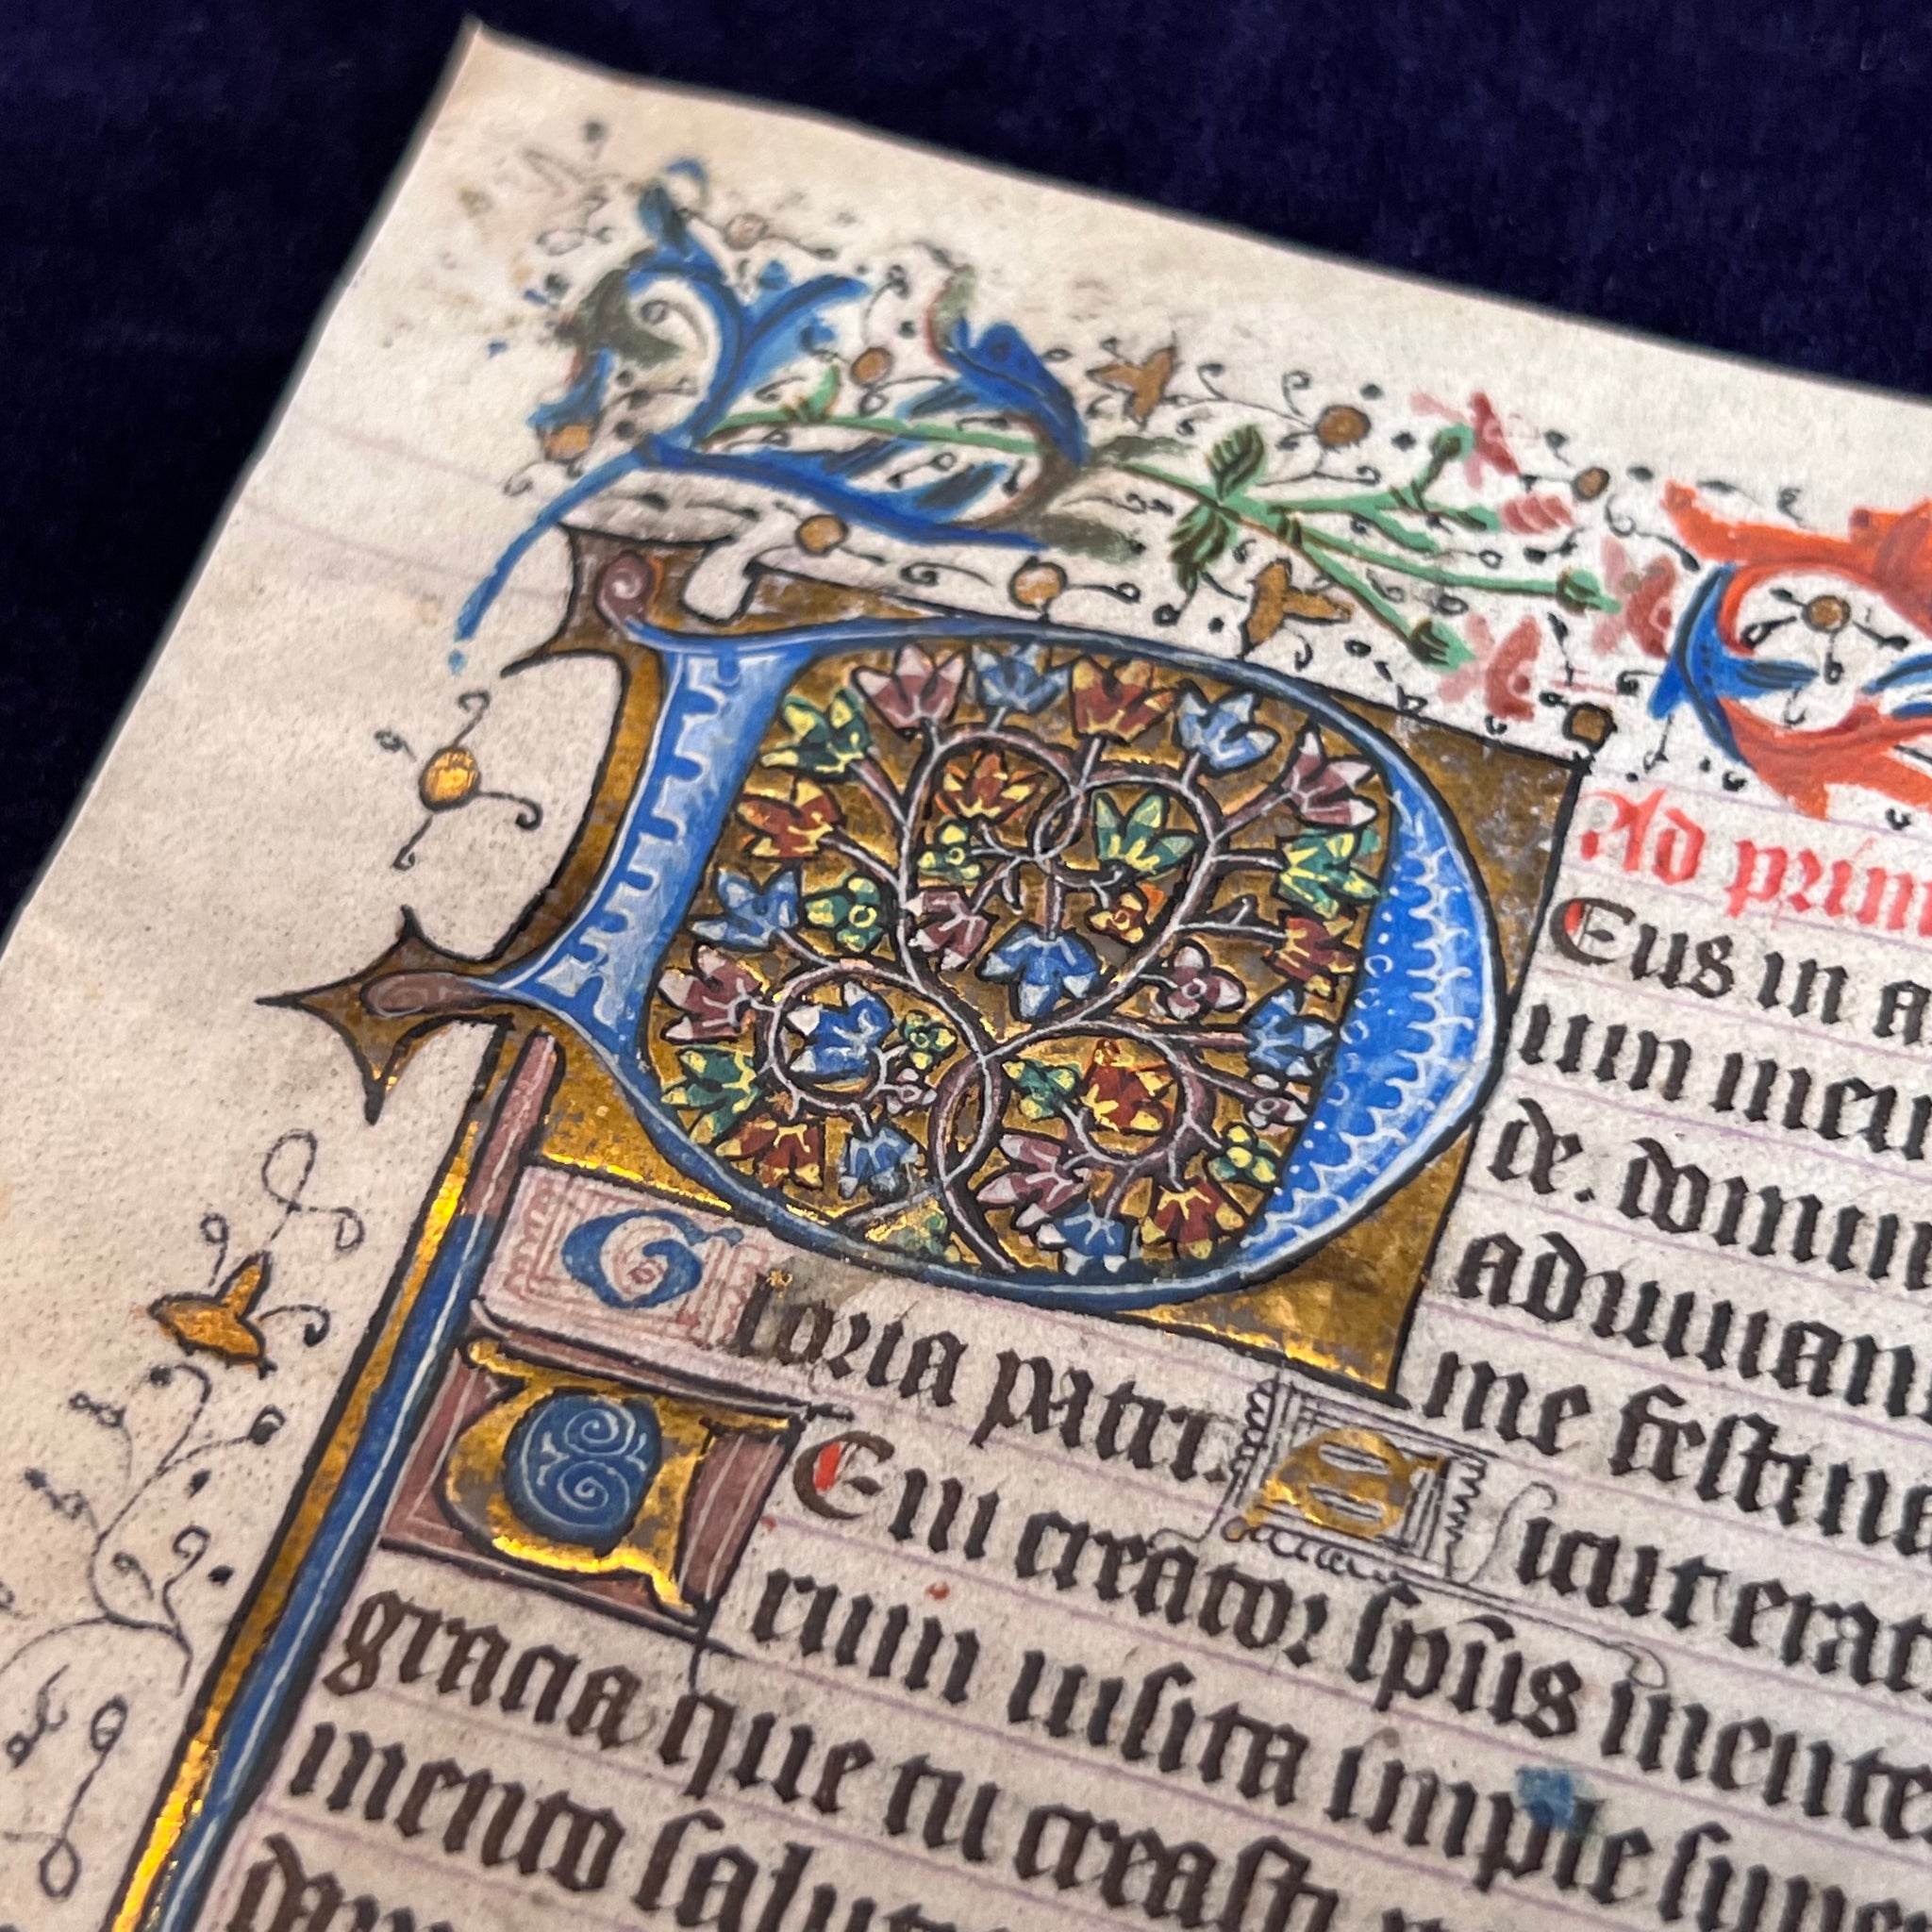 Ad prim
DEus in a
um meu
de. domin
adiuuan
me festina
Gloria patri. Sicut erat
UEni creator sp̃us mente
rum uisita imple supe
gracia que tu creasti
mento salut